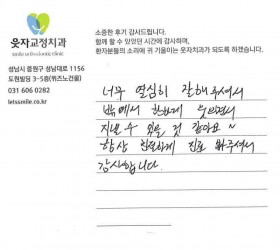 웃자교정치과
smile orthodontic clinic
성남시 중원구 성남대로 1156
도현빌딩 3~5층(퀴즈노건물)
031 606 0282
letssmile.co.kr
소중한 후기 감사드립니다.
함께 할 수 있었던 시간에 감사하며,
환자분들의 소리에 귀 기울이는 웃자치과가 되도록 하겠습니다.
너무 열심히 잘해주셔서
밖에서 환하게 웃으면서
지낼 수 있을 것 같아요~
항상 친절하게 진료 봐주셔서
감사합니다.